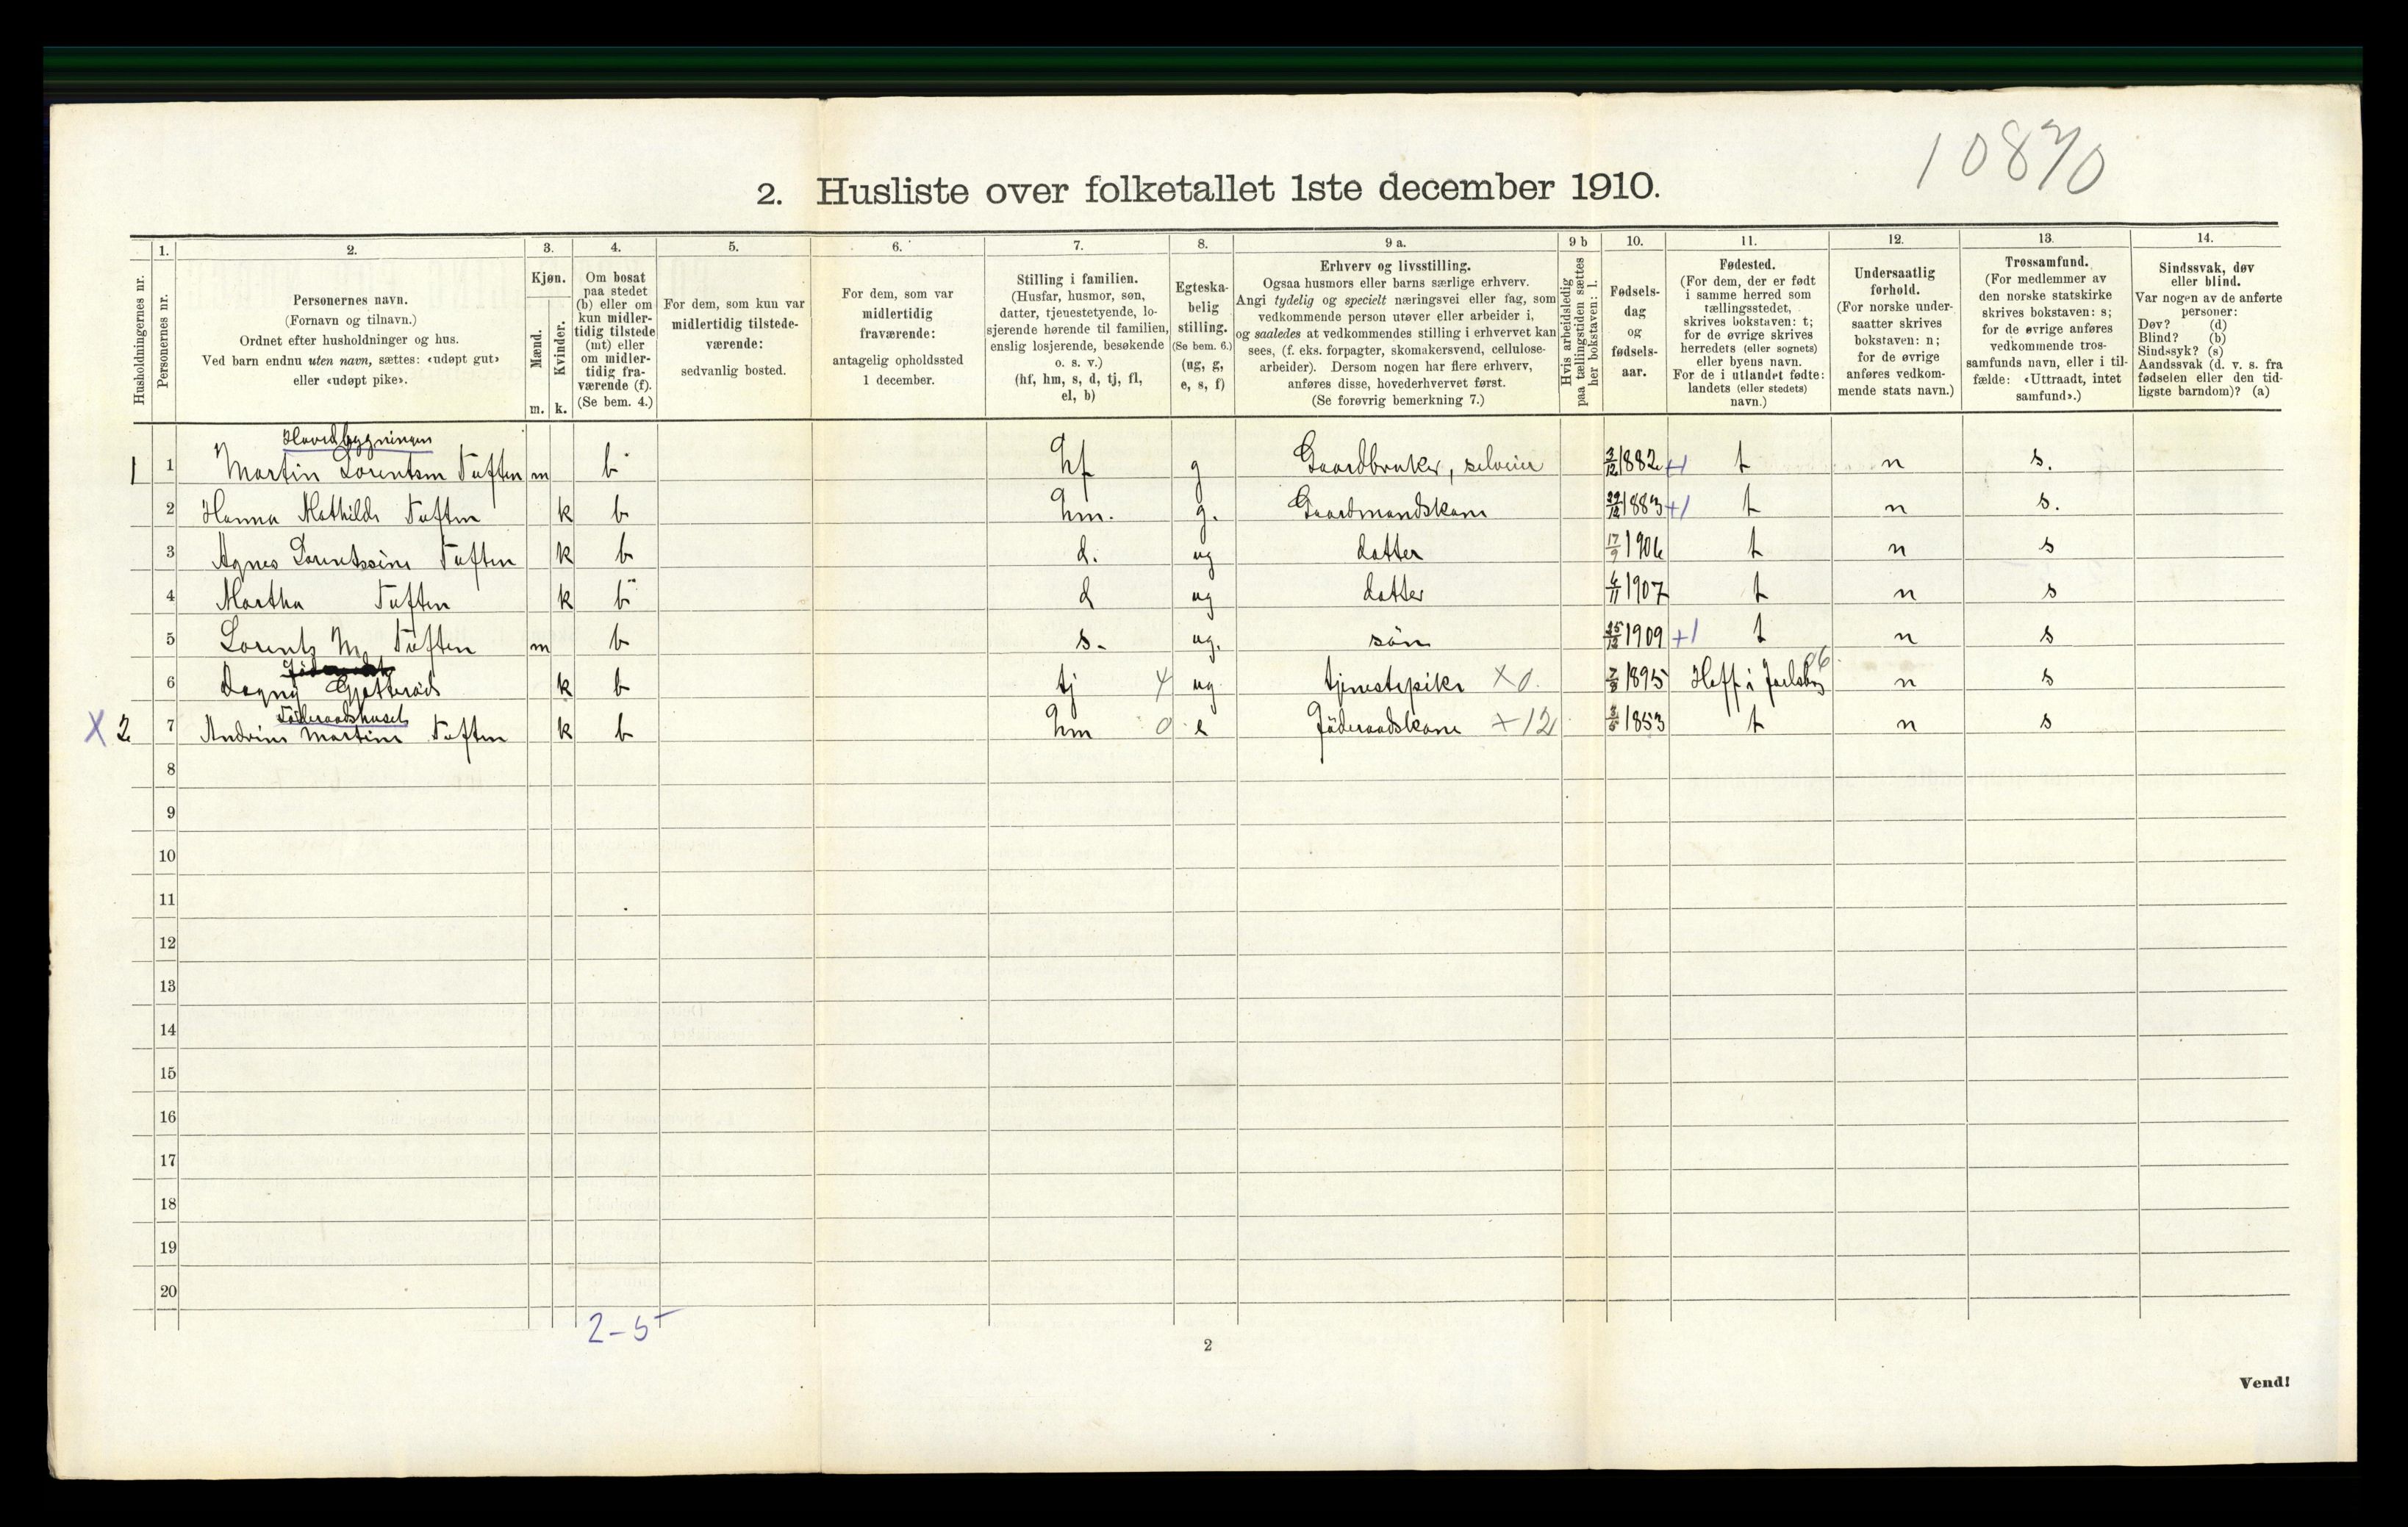 10870
2. Husliste over folketallet 1ste december 1910.
1. 2. 3. 4. 5. 6. 7. 8. 9 a. 9 b 10. 11. 12. 13. 14.
Husholdningernes nr.
Personernes nr.
Personernes navn.
(Fornavn og tilnavn.)
Ordnet efter husholdninger og hus.
Ved barn endnu uten navn, sættes: «udøpt gut»
eller «udøpt pike».
Kjøn.
Mænd.
Kvinder.
m. k.
Om bosat
paa stedet
(b) eller om
kun midler-
tidig tilstede
(mt) eller
om midler-
tidig fra-
værende (f).
(Se bem. 4.)
For dem, som kun var
midlertidig tilstede-
værende:
sedvanlig bosted.
For dem, som var
midlertidig
fraværende:
antagelig opholdssted
1 december.
Stilling i familien.
(Husfar, husmor, søn,
datter, tjenestetyende, lo-
sjerende hørende til familien,
enslig losjerende, besøkende
o. s. v.)
(hf, hm, s, d, tj, fl,
el, b)
Egteska-
belig
stilling.
(Se bem. 6.)
(ug, g,
e, s, f)
Erhverv og livsstilling.
Ogsaa husmors eller barns særlige erhverv.
Angi tydelig og specielt næringsvei eller fag, som
vedkommende person utøver eller arbeider i,
og saaledes at vedkommendes stilling i erhvervet kan
sees, (f. eks. forpagter, skomakersvend, cellulose-
arbeider). Dersom nogen har flere erhverv,
anføres disse, hovederhvervet først.
(Se forøvrig bemerkning 7.)
Hvis arbeidsledig
paa tællingstiden sættes
her bokstaven: l.
Fødsels-
dag
og
fødsels-
aar.
Fødested.
(For dem, der er født
i samme herred som
tællingsstedet,
skrives bokstaven: t;
for de øvrige skrives
herredets (eller sognets)
eller byens navn.
For de i utlandet fødte:
landets (eller stedets)
navn.)
Undersaatlig
forhold.
(For norske under-
saatter skrives
bokstaven: n;
for de øvrige
anføres vedkom-
mende stats navn.)
Trossamfund.
(For medlemmer av
den norske statskirke
skrives bokstaven: s;
for de øvrige anføres
vedkommende tros-
samfunds navn, eller i til-
fælde: «Uttraadt, intet
samfund».)
Sindssvak, døv
eller blind.
Var nogen av de anførte
personer:
Døv? (d)
Blind? (b)
Sindssyk? (s)
Aandssvak (d. v. s. fra
fødselen eller den tid-
ligste barndom)? (a)
Hovedbygningen
1 1 Martin Lorentsen Tuften m b hf g Gaardbruker, selveier 3/12 1882 +1 t n s.
2 Hanna Mathilde Tuften k b hm. g. Gaardmandskone 29/12 1883 +1 t n s.
3 Agnes Lorentssine Tuften k b d. ug datter 17/9 1906 t n s
4 Martha Tuften k b d ug datter 4/11 1907 t n s
5 Lorents M. Tuften m b s. ug. søn 25/12 1909 +1 t n s
6 Dagny k b tj 4 ug tjenestepike X0. 7/8 1895 Hoff i Jarlsberg 06 n s
Föderaadshuset
X 2 7 Andrine Martine Tuften k b hm 0 e Föderaadskone X12 3/5 1853 t n s
8
9
10
11
12
13
14
15
16
17
18
19
20
2-5
2
Vend!